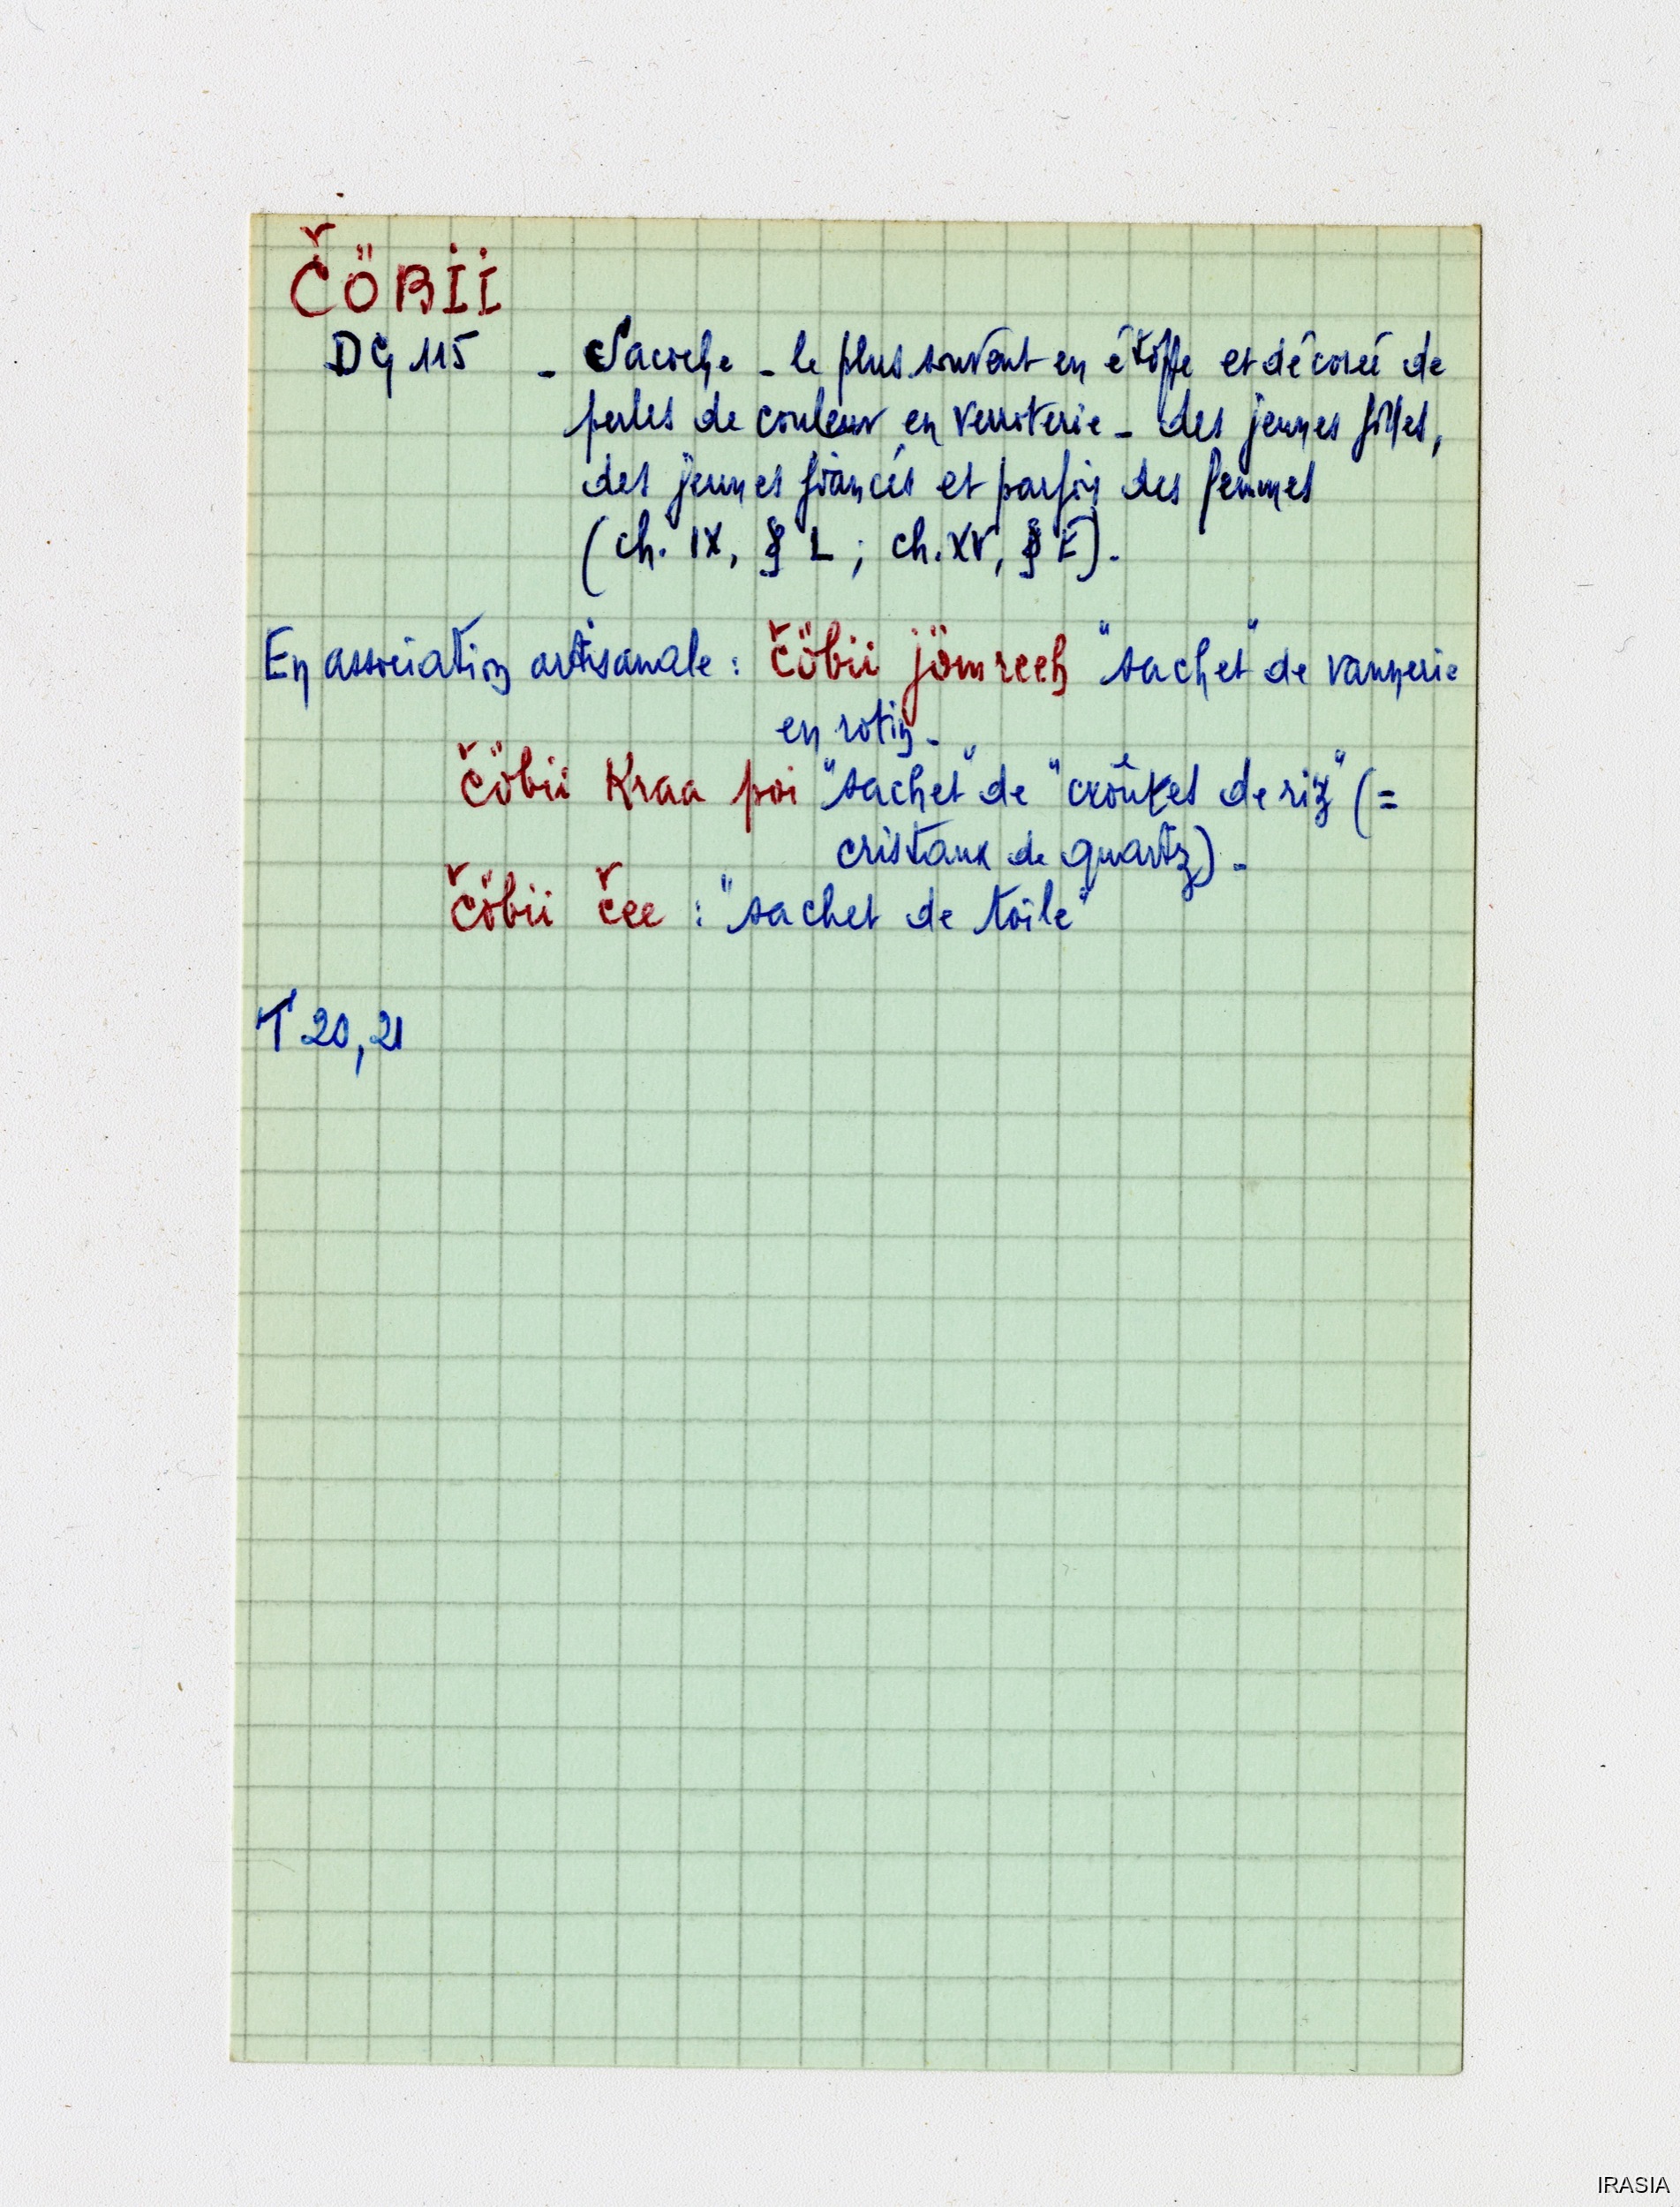 ČÖBII
DG 115 - Sacoche - le plus souvent en étoffe et décorée de
perles de couleur en verroterie - des jeunes filles,
des jeunes fiancés et parfois des femmes
(ch. IX, § L ; ch. XV, § E).
En association artisanale : čöbii jömreeh "sachet" de vannerie
en rotin -
čöbii Kraa poi "sachet" de "croûtes de riz" (=
cristaux de quartz) -
čöbii čee : "sachet de toile"
T 20, 21
IRASIA